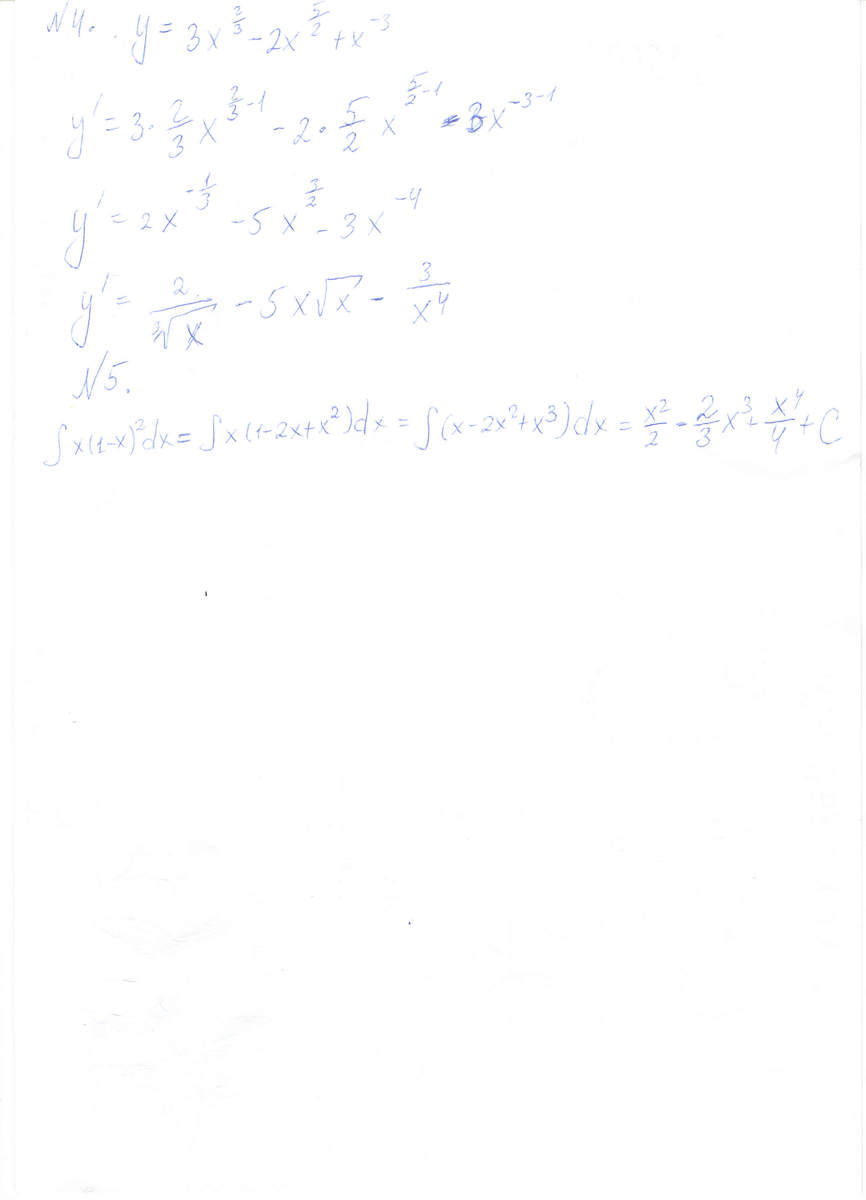 N4. y = 3x^{2/3} - 2x^{5/2} + x^{-3}
y' = 3 · 2/3 x^{2/3-1} - 2 · 5/2 x^{5/2-1} - 3x^{-3-1}
y' = 2x^{-1/3} - 5x^{3/2} - 3x^{-4}
y' = 2/∛x - 5x√x - 3/x^4
N5.
∫x(1-x)^2dx = ∫x(1-2x+x^2)dx = ∫(x-2x^2+x^3)dx = x^2/2 - 2/3 x^3 + x^4/4 + C